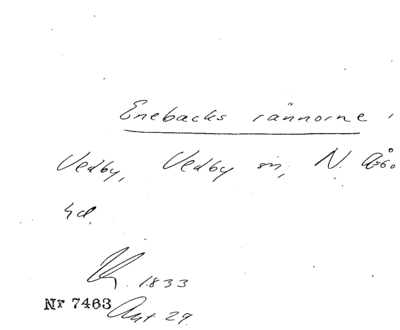 Enebacks rännorne i
Vedby, Vedby sn, N. Åsbo
hd.
1833
Nr 7463 Akt 29